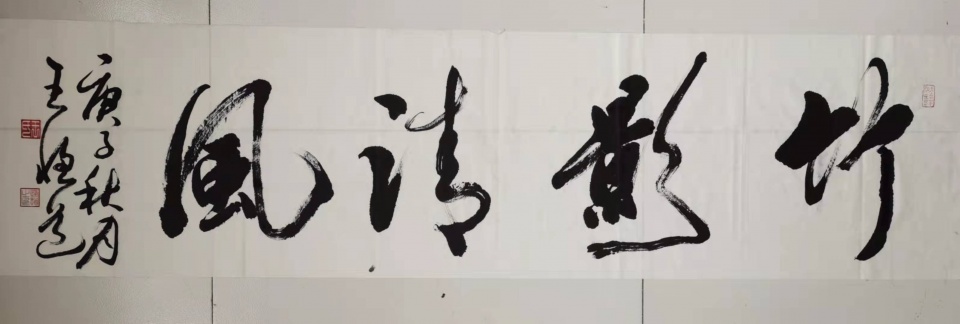 竹影清风
庚子秋月
王